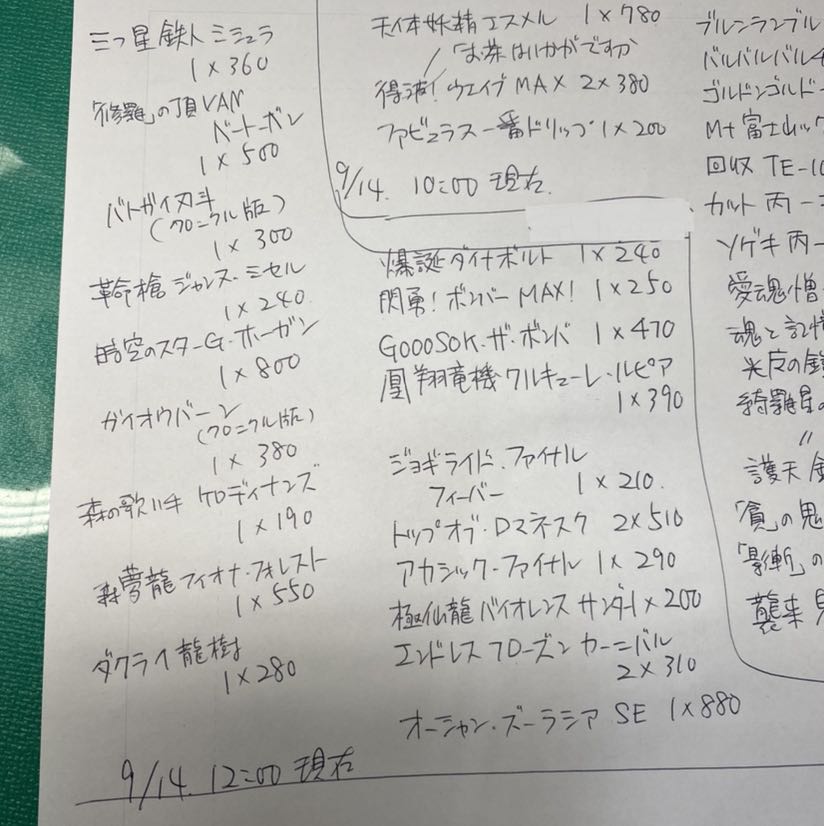 三つ星鉄人ミシュラ
1×360
「修羅」の頂VAN
ベートーベン
1×500
バトガイ刃斗
(クロニクル版)
1×300
革命槍ジャンヌ・ミゼル
1×240
時空のスターG・ホーガン
1×800
ガイオウバーン
(クロニクル版)
1×380
森の歌い手 ケロディナンズ
1×190
森夢龍フィオナ・フォレスト
1×550
ダクライ龍樹
1×280
9/14. 12:00 現在
天体妖精エスメル 1×780
「お茶はいかがですか
得波!ウェイブMAX 2×380
ファビュラス一番ドリップ 1×200
9/14. 10:00 現在.
爆誕ダイナボルト 1×240
閃勇!ボンバーMAX! 1×250
GOOOSOK・ザ・ボンバ 1×470
凰翔竜機・ワルキューレ・ルピア
1×390
ジョギライド・ファイナル
フィーバー 1×210.
トップオブ・ロマネスク 2×510
アカシック・ファイナル 1×290
極仙龍バイオレンス サンダー 1×200
エンドレスフローズンカーニバル
2×310
オーシャン・ズーラシア SE 1×880
ブルンランブル
バルバルバル
ゴルドンゴルドー
Mt富士山ック
回収 TE-10
カット 丙-
ソゲキ 丙-
愛魂憎
魂と記憶
光友の
綺羅星の
〃
護天
「貪」の鬼
「影斬」の
襲来